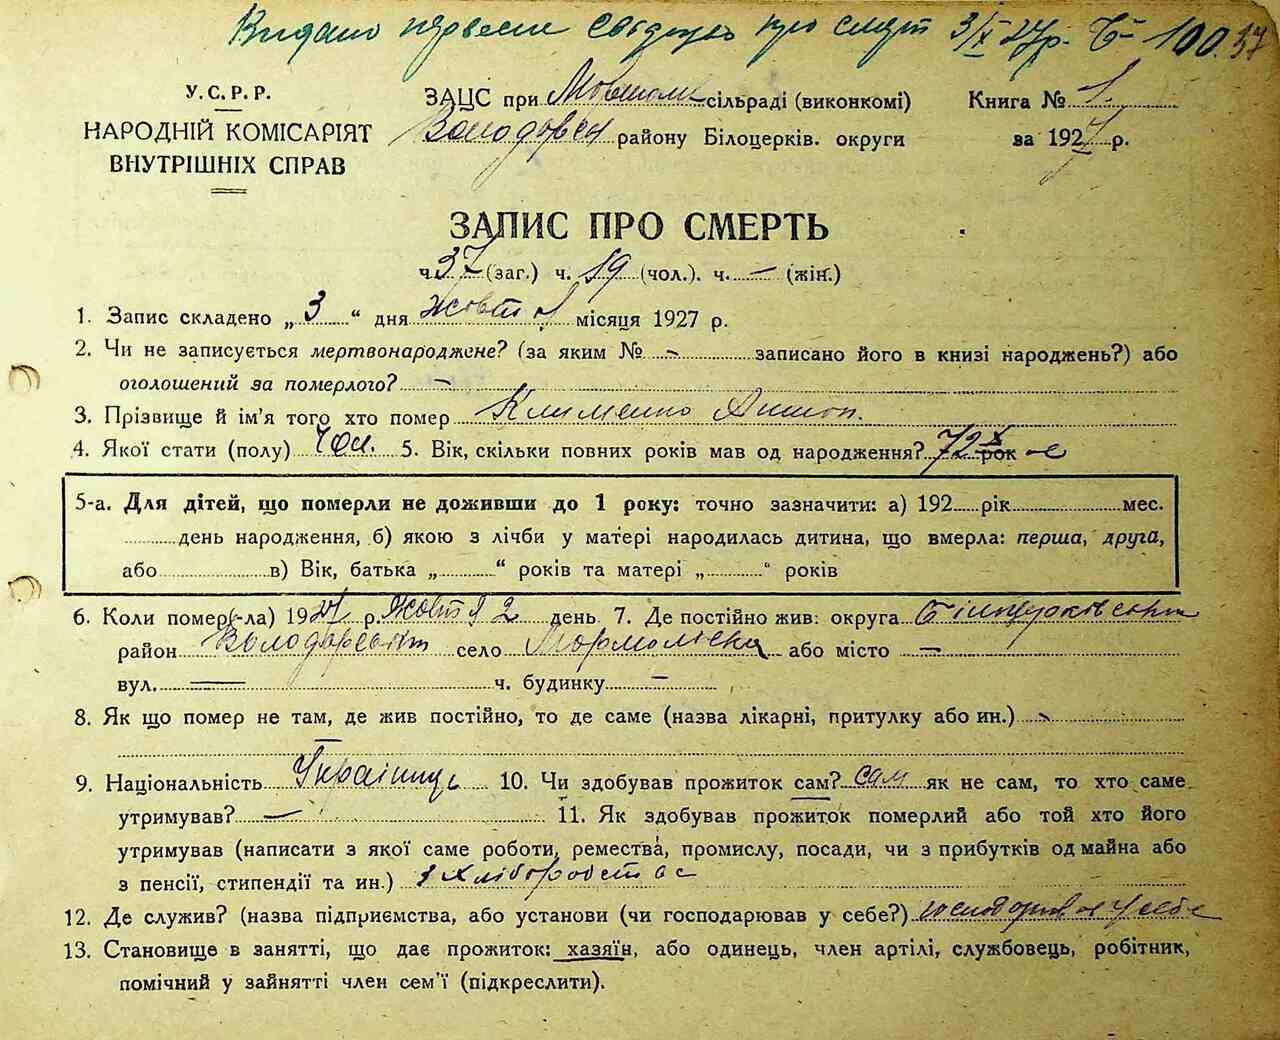 Видано первесне свідоцтво про смерть 3/X 27 р. 100. 37
У.С.Р.Р.
НАРОДНІЙ КОМІСАРІЯТ
ВНУТРІШНІХ СПРАВ
ЗАЦС при сільраді (виконкомі)
Володарськ району Білоцерків. округи
Книга № 1.
за 1927 р.
ЗАПИС ПРО СМЕРТЬ
ч. 37 (заг.) ч. 19 (чол.). ч. — (жін.)
1. Запис складено „ 3 “ дня жовтня місяця 1927 р.
2. Чи не записується мертвонароджене? (за яким № - записано його в книзі народжень?) або
оголошений за померлого? —
3. Прізвище й ім'я того хто помер Клименко Антон.
4. Якої стати (полу) чол. 5. Вік, скільки повних років мав од народження? 72 рок
5-а. Для дітей, що померли не доживши до 1 року: точно зазначити: а) 192 рік мес.
день народження, б) якою з лічби у матері народилась дитина, що вмерла: перша, друга,
або в) Вік, батька „ “ років та матері „ “ років
6. Коли помер(-ла) 1927 р. жовтня 2 день 7. Де постійно жив: округа Білоцерковська
район Володарський село або місто —
вул. ч. будинку —
8. Як що помер не там, де жив постійно, то де саме (назва лікарні, притулку або ин.)
9. Національність Українець 10. Чи здобував прожиток сам? сам як не сам, то хто саме
утримував? — 11. Як здобував прожиток померлий або той хто його
утримував (написати з якої саме роботи, ремества, промислу, посади, чи з прибутків од майна або
з пенсії, стипендії та ин.) з хліборобства
12. Де служив? (назва підприємства, або установи (чи господарював у себе?) господарював у себе
13. Становище в занятті, що дає прожиток: хазяїн, або одинець, член артілі, службовець, робітник,
помічний у зайнятті член сем'ї (підкреслити).